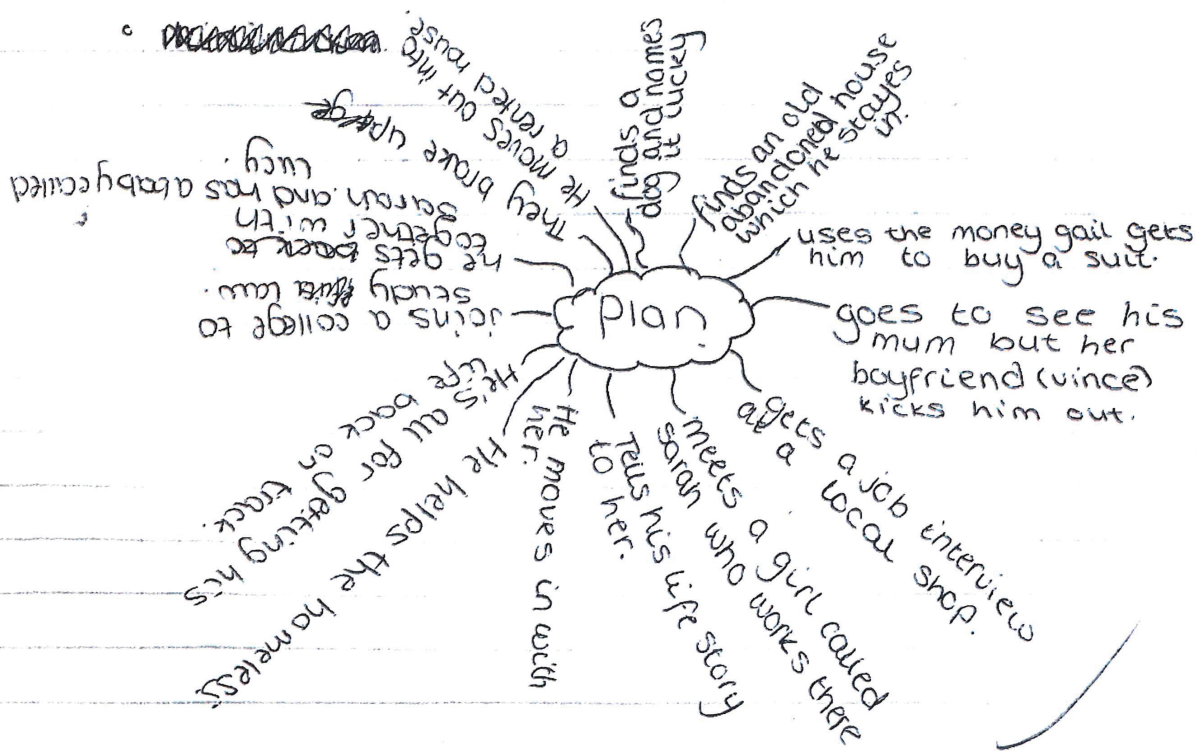 Plan
finds a
dog and names
it lucky
finds an old
abandoned house
which he stayes
in.
uses the money gail gets
him to buy a suit.
goes to see his
mum but her
boyfriend (vince)
kicks him out.
gets a job interview
at a
local shop.
meets a girl called
sarah who works there
Tells his life story
to her.
He moves in with
her.
He helps the homeless.
He's all for getting his
life back on
track.
joins a college to
study law.
he gets back to
together with
Sarah. and has a baby called
Lucy.
They brake up
He moves out into
a rented house.